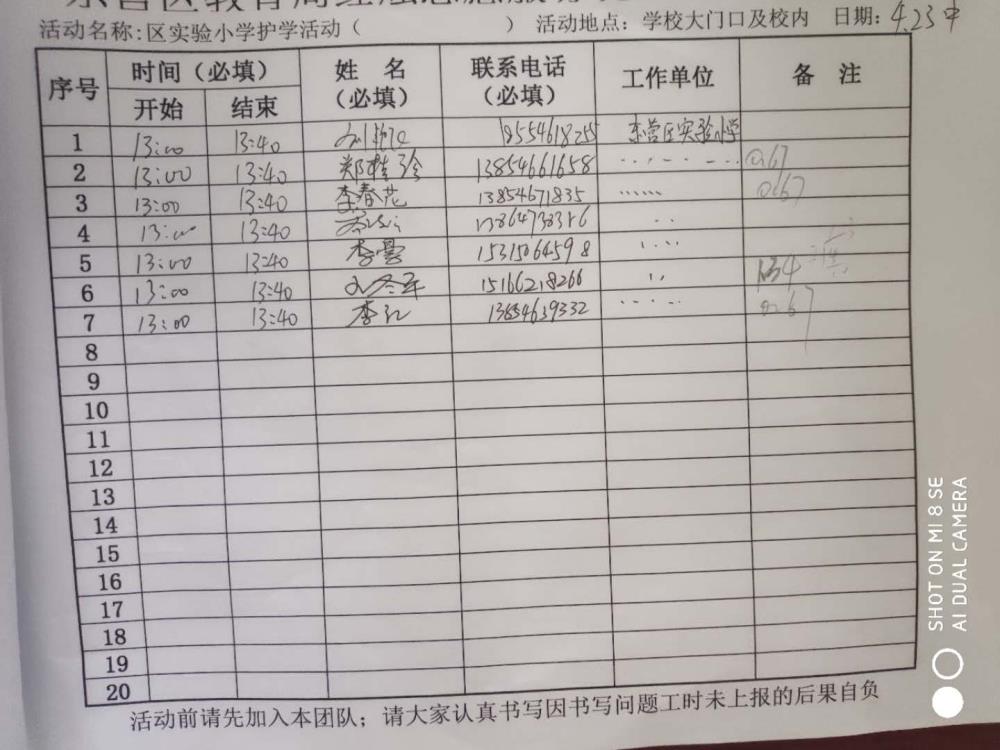 活动名称:区实验小学护学活动（ ） 活动地点：学校大门口及校内 日期：4.23中
序号 时间（必填） 姓 名（必填） 联系电话（必填） 工作单位 备 注
开始 结束
1 13:00 13:40 18554618255 东营区实验小学
2 13:00 13:40 郑桂玲 13854661658 0267
3 13:00 13:40 李春花 13854671835 0267
4 13:00 13:40
5 13:00 13:40 李雪 15315064598
6 13:00 13:40 15166218266
7 13:00 13:40 李红 13654639332
8
9
10
11
12
13
14
15
16
17
18
19
20
活动前请先加入本团队；请大家认真书写因书写问题工时未上报的后果自负
SHOT ON MI 8 SE
AI DUAL CAMERA